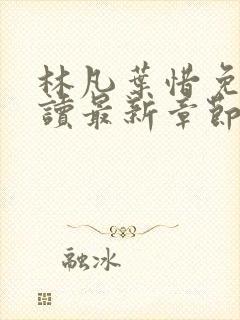 林凡葉惜免
讀最新章節
融冰